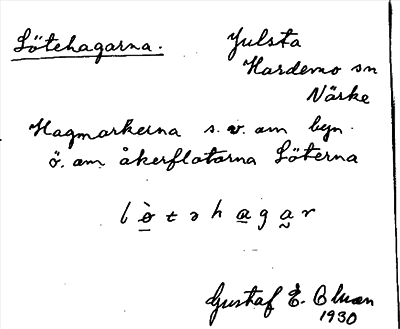 Lötehagarna.
Julsta
Hardemo sn
Närke
Hagmarkerna s.v. om byn.
ö. om åkerflatarna Löterna
l ö̀ t ə h a g a r
Gustaf E.
1930